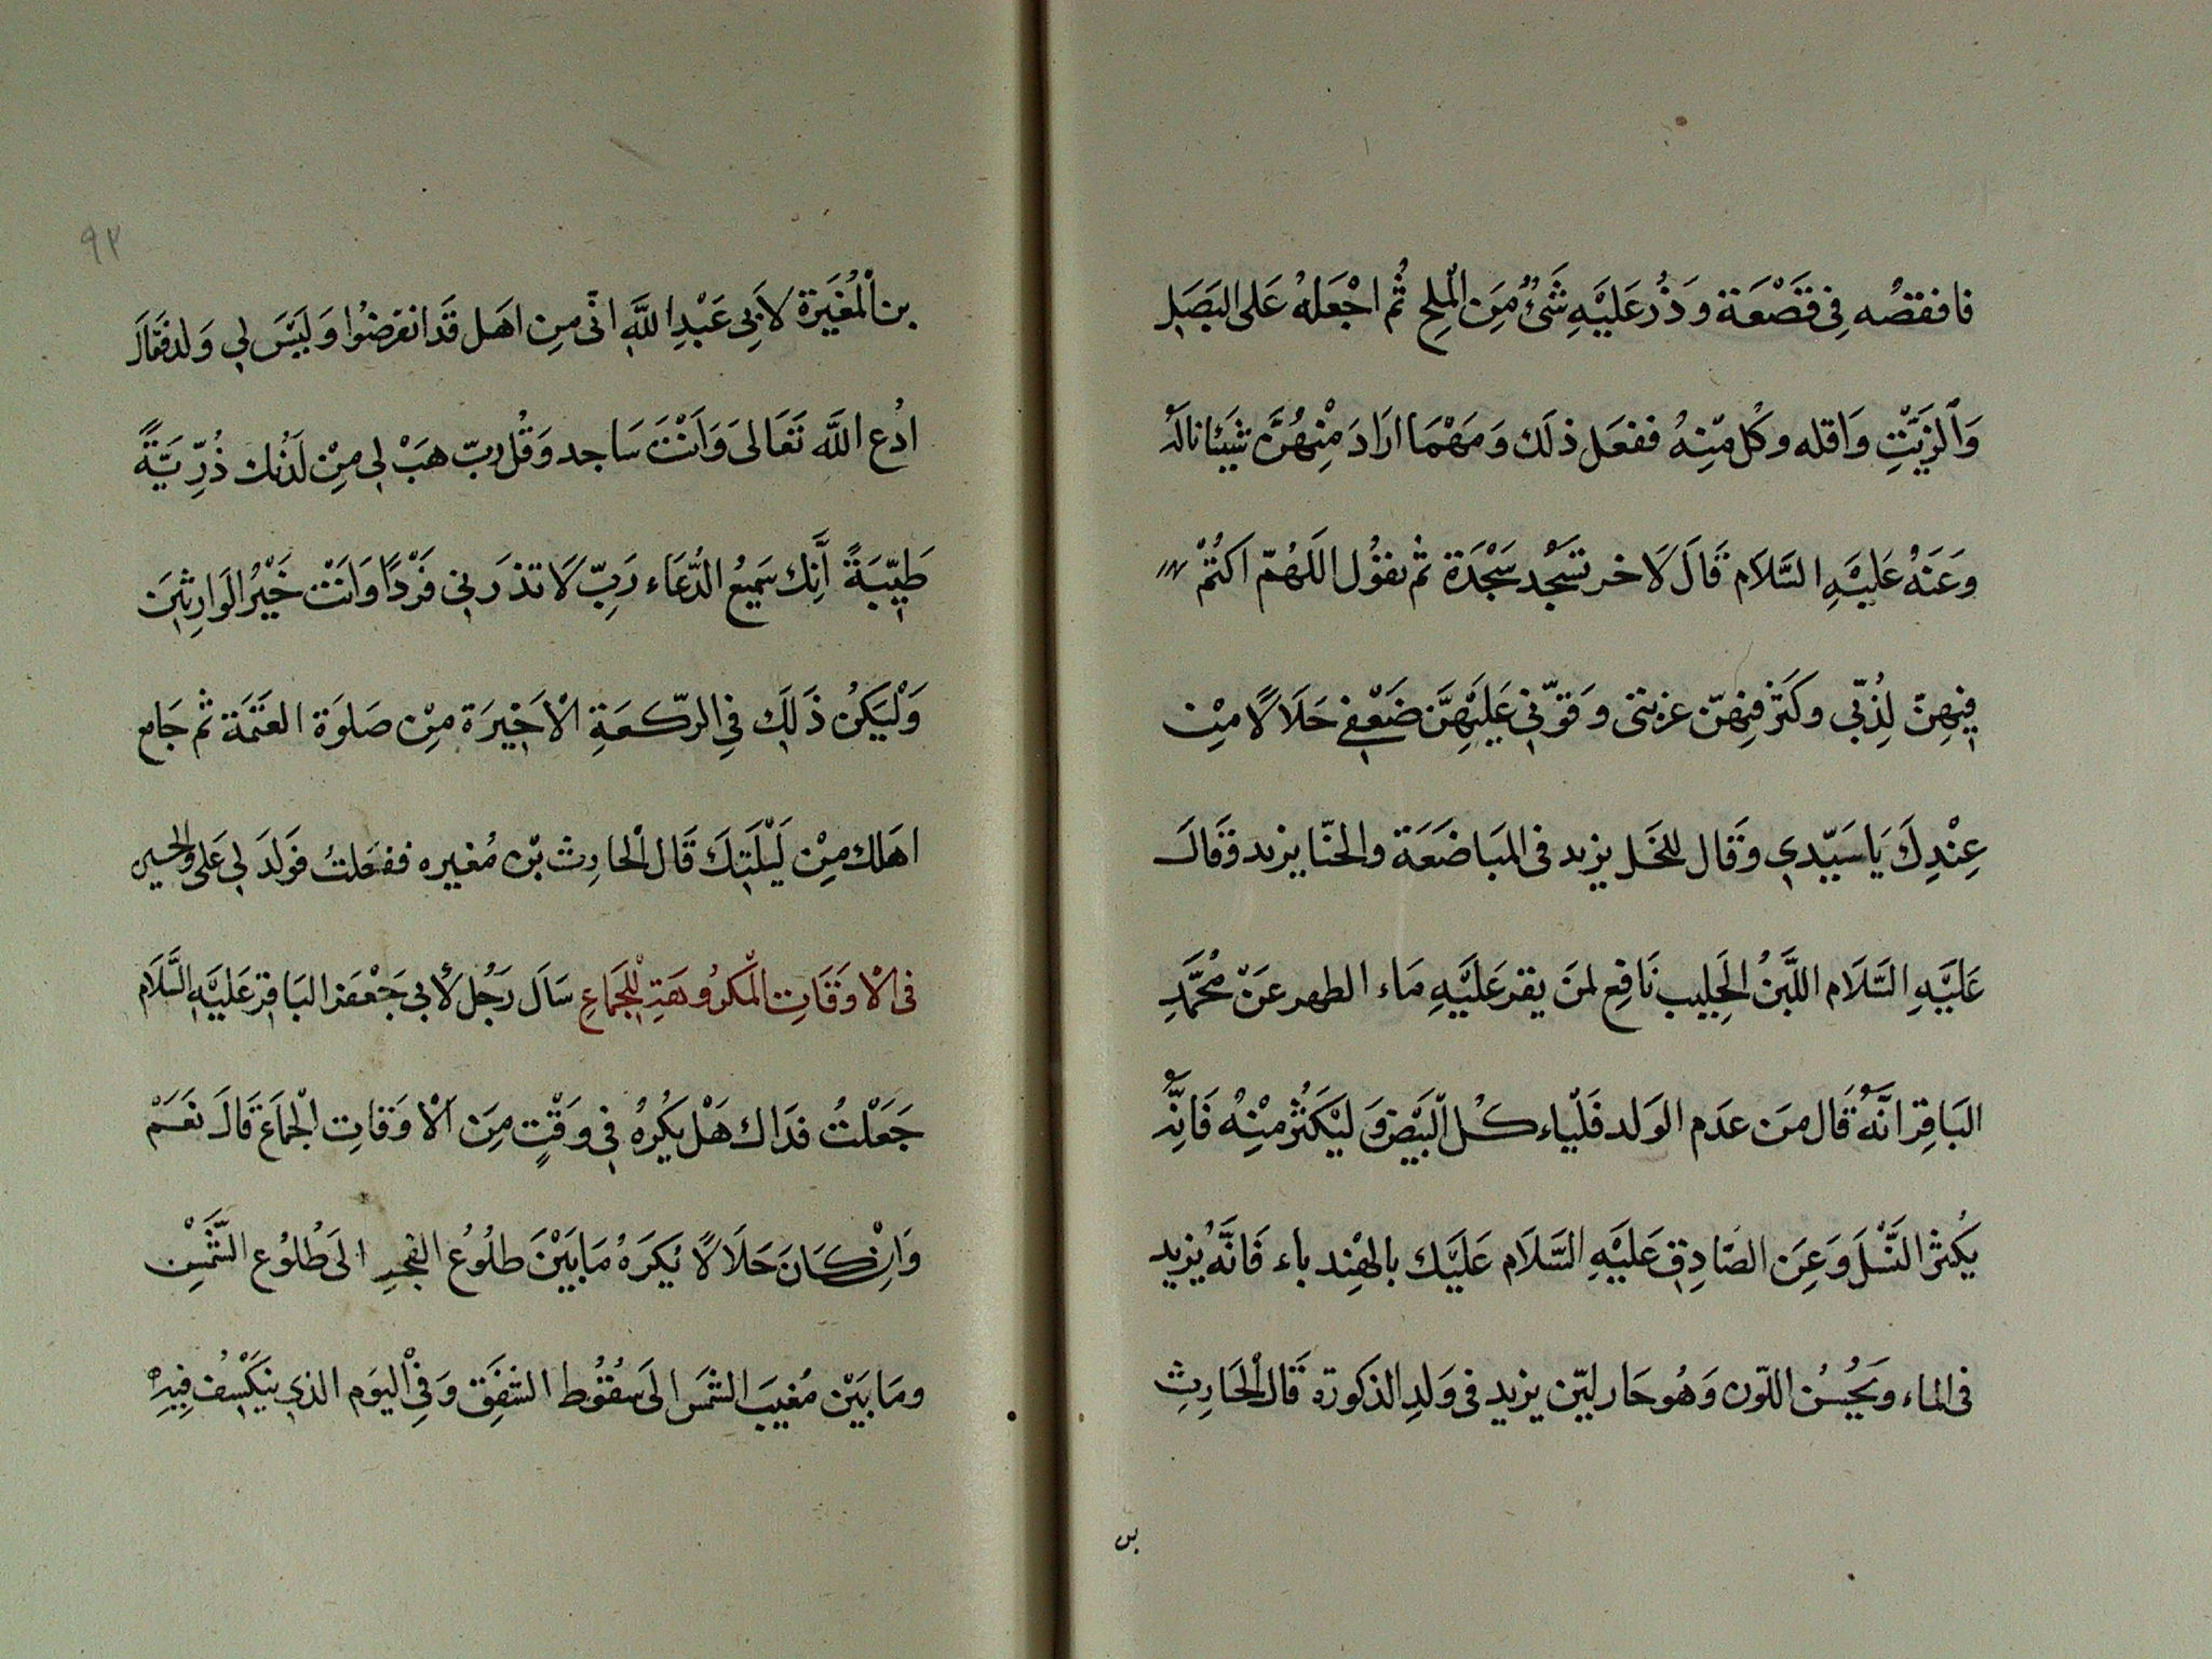 فافقصُه فِى قَصْعَة وَذُر عَلَيْهِ شَىْءٌ مِنَ الْمِلِح ثُم اجْعَلهُ عَلى البَصَلِ
وَالزَيْتِ وَاقله وكُل مِنْهُ ففعَل ذلَك وَمَهْمَا ارَادَ مِنْهُنَّ شَيْئا نالَهُ
وَعَنهُ عَلَيْهِ السَّلاَم قَالَ لاَخر تسَجُد سَجْدَة ثم تقوُل اللَهُمّ اكتُمْ
فِيهِنّ لِذُبّى وكَثر فِيهّن غزبتى وَقوّنِى عَلَيهِنَّ ضَعْفِى حَلاَلاً مِنْ
عِنْدِكَ يَا سَيّدِي وَقَال للخَل يزيد فى المبَاضَعَة والحنّا يزيد وَقَالَ
عَلَيْهِ السَّلاَم اللَّبَنُ الْحَلِيب نَافِع لمَن يقر عَلَيْهِ مَاء الطهر عَنْ مُحَّمَدِ
البَاقِر انَّهُ قَال مَن عدَم الوَلد فَلْياء كُل الْبَيْض وَ ليَكْثُر مِنْهُ فَانِّهُ
يكُثر النَسْلَ وَعَن الصّادِق عَلَيْهِ السَّلاَم عَلَيْك بالهِندباء فَانَّهُ يزيد
فى الماء ويَحُسُن اللّون وَهُو حَار ليّن يزيد فى وَلدِ الذكورَة قَال الْحَارِثِ
بن
٩٢
بن الْمُغيَرَة لاَبِى عَبْدِ اللَّه انّى مِن اهَل قَد انقرضُوا وَلَيْسَ لِي وَلد فَقَالَ
ادُع اللَّه تَعَالىَ وَاَنْتَ سَاجد وَقُل ربّ هبَ لِى مِنْ لَدُنْك ذُرِّيَّةً
طَيِّبَةً اَّنِك سَمِيُع الدُّعَاء رَبِّ لاَ تذرَنِى فَرْدًا وَانَتْ خَيْرُ الوَارِثِينَ
وَلْيَكُن ذَلِك فِى الرّكعَةِ الْاَخِيرَة مِنْ صَلوَة العَتَمَة ثم جَامع
اهَلك مِنْ لَيْلَتِكَ قَال الْحارِث بْن مُغيره ففعَلتُ فوَلدَ لِى عَلى والحسين
فى الْاوقَاتِ الْمَكرُوهَةِ لِلْجَمَاعِ سَاَل رَجُل لأبى جَعْفر البَاقِر عَلَيْهِ السَّلاَم
جَعَلْتُ فدَاك هَلْ يكُرهُ فِى وَقْتٍ مِنَ الْاوَقاتِ الْجمَاعَ قَالَ نعَمَ
وَاِنْ كَانَ حَلاَلاً يُكرَهُ مَا بَيْنَ طلُوُع الفجرِ الَى طُلوُع الشَّمْسِ
ومَا بَيْن مُغيبَ الشمَس الَى سقُوُط الشفَقِ وَفِى الْيوَم الذِى ينكَسِفُ فِيهِ